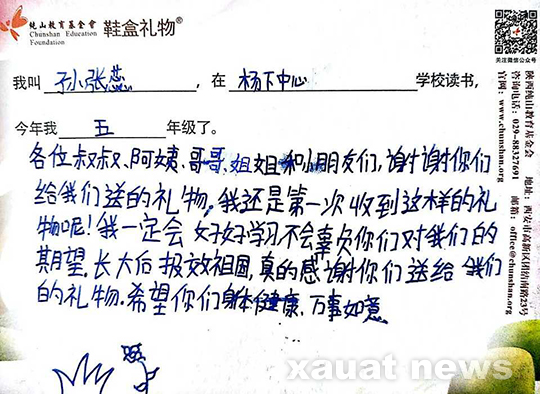 纯山教育基金會
Chunshan Education
Foundation
鞋盒礼物®
关注微信公众号
我叫 孙张蕊 ,在 杨下中心 学校读书,
今年我 五 年级了。
各位叔叔、阿姨、哥哥、姐姐和小朋友们,谢谢你们
给我们送的礼物,我还是第一次收到这样的礼
物呢!我一定会好好学习不会辜负你们对我们的
期望,长大后报效祖国,真的感谢你们送给我们
的礼物.希望你们身体健康.万事如意
陕西纯山教育基金会 地址:西安市高新区沣惠南路23号
咨询电话:029-88327691 邮箱:office@chunshan.org
官网:www.chunshan.org
xauat news